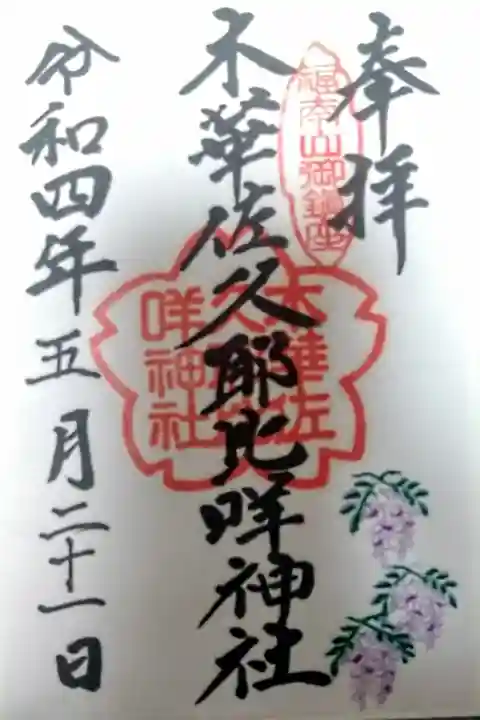 奉拝
福南山御鎮座
木華佐久耶比咩神社
木華佐
久耶比
咩神社
令和四年五月二十一日